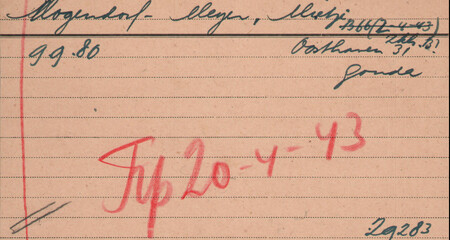 Mogendorf - Meyer, Mietje
B66 (2-4-43)
9 9.80 Oosthaven 31
Gouda
Trp 20-4-43
29283